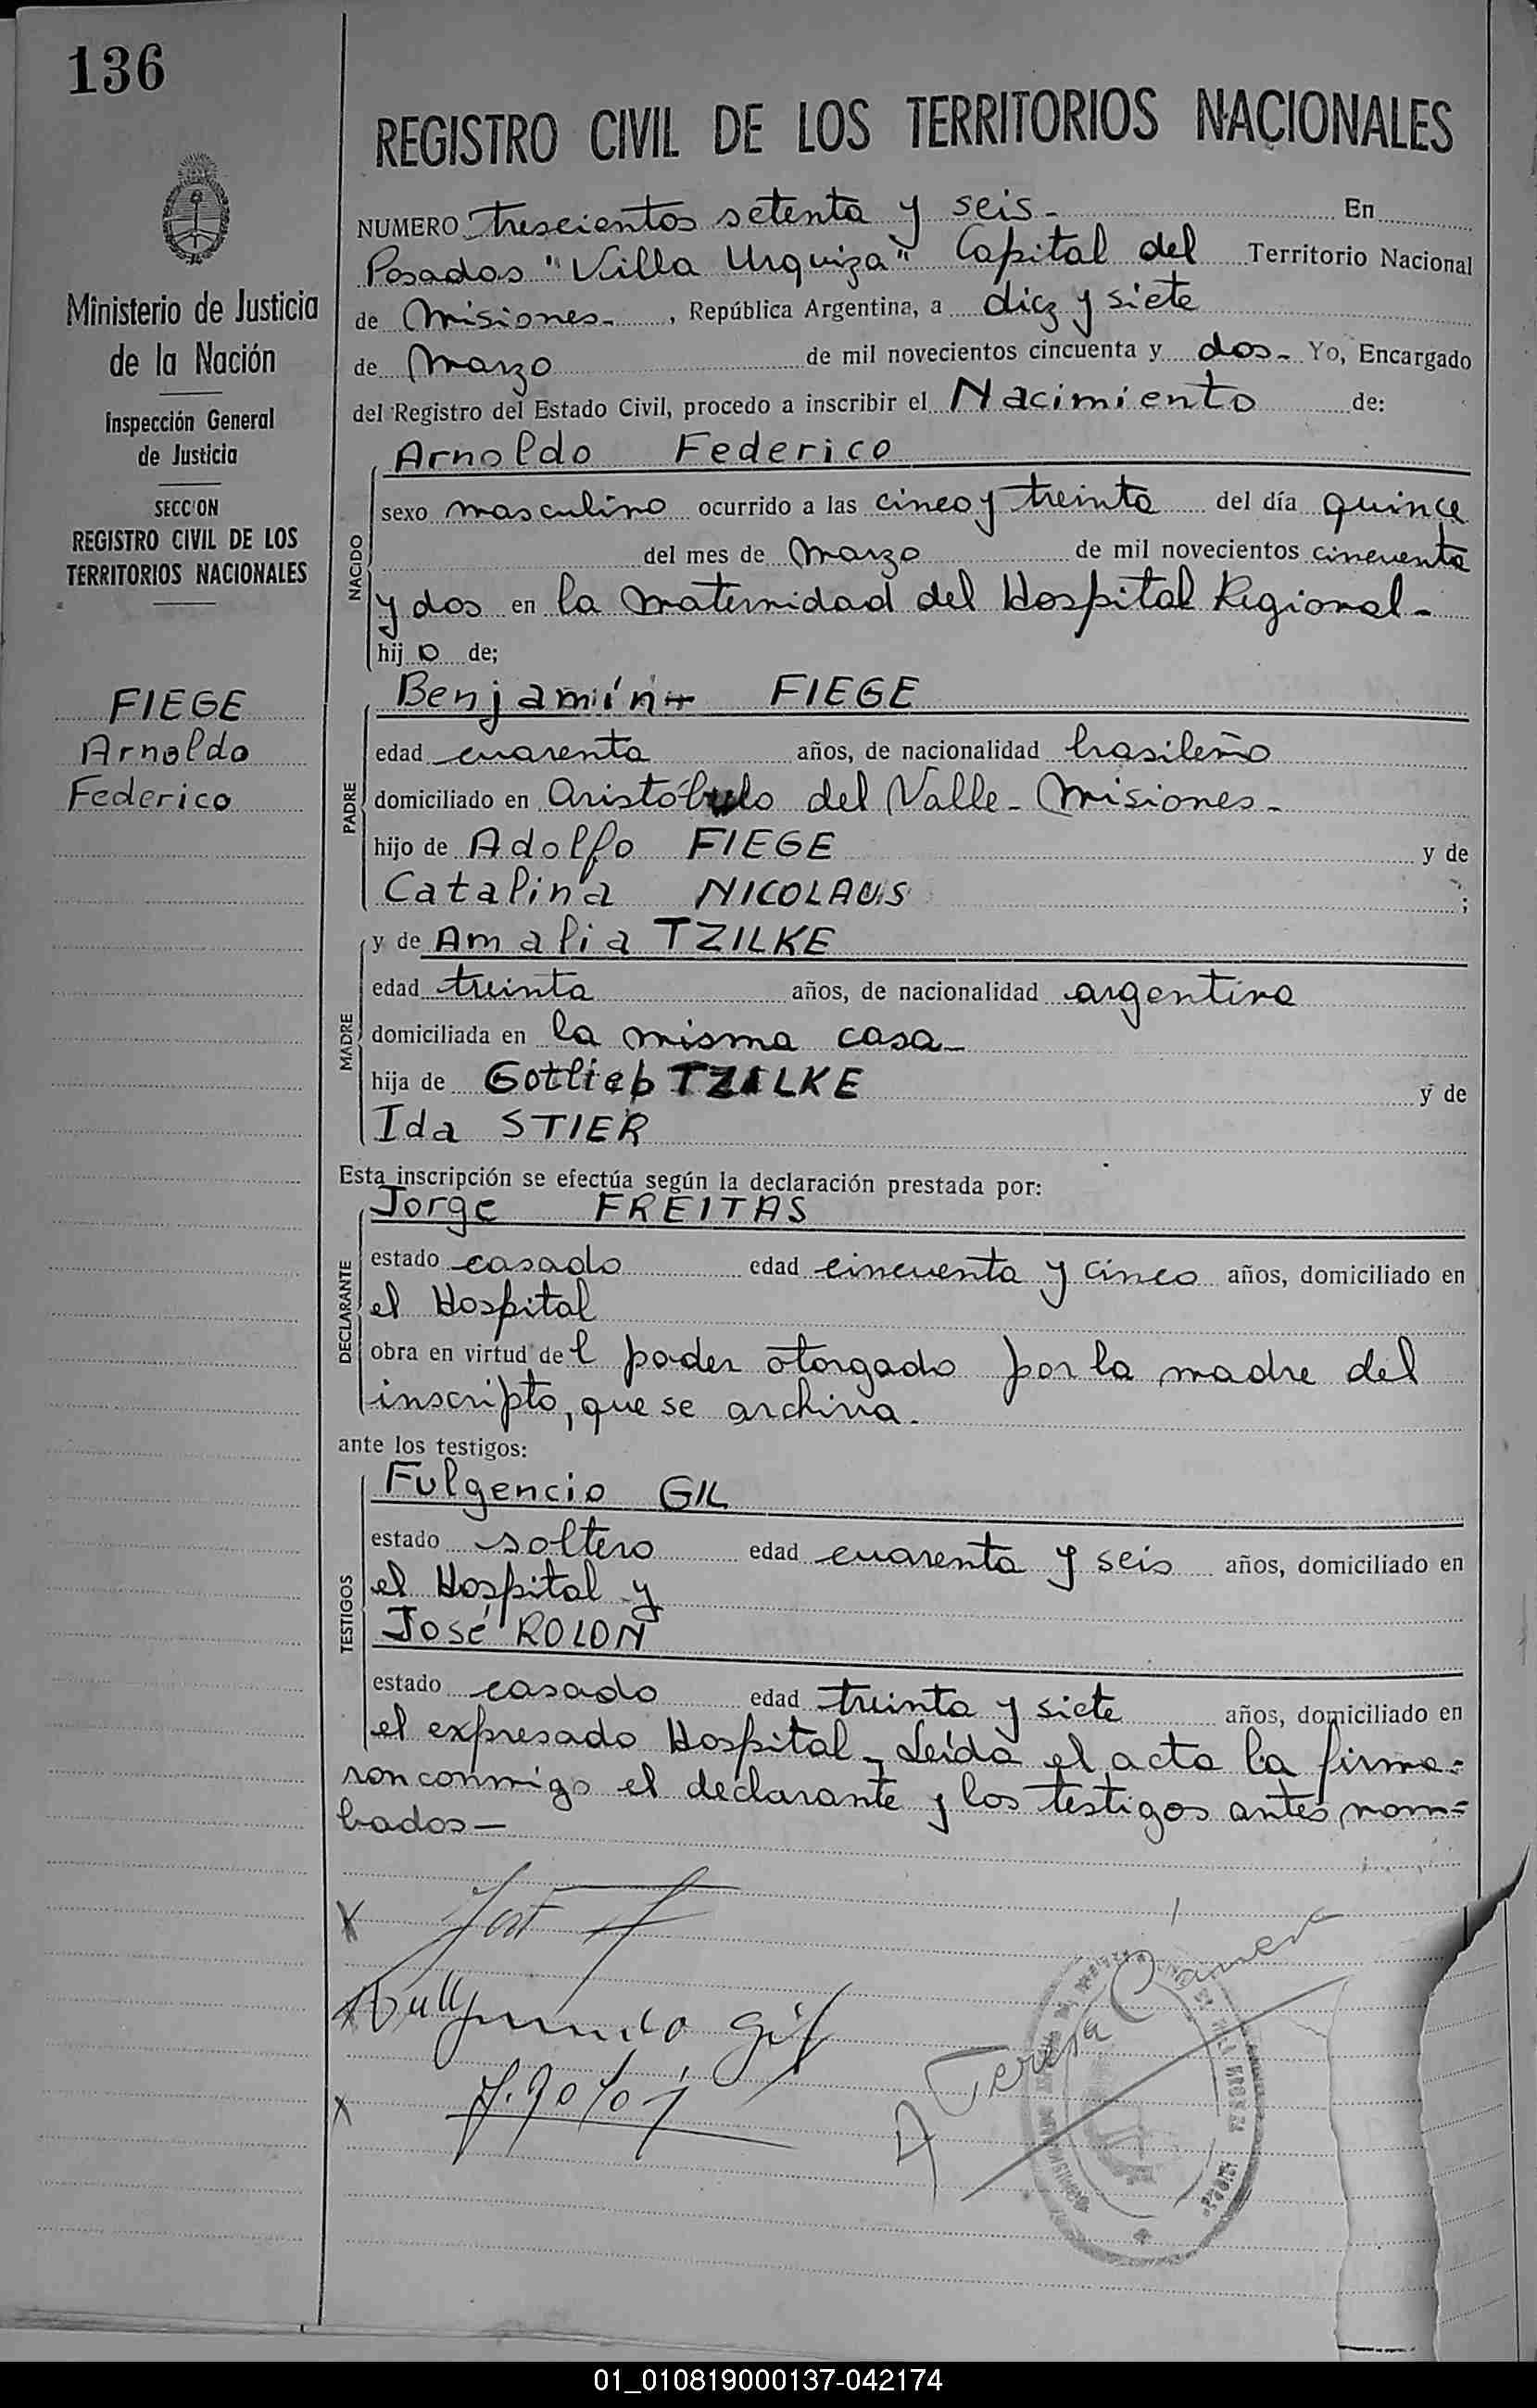 136
REGISTRO CIVIL DE LOS TERRITORIOS NACIONALES
Ministerio de Justicia
de la Nación
Inspección General
de Justicia
SECCION
REGISTRO CIVIL DE LOS
TERRITORIOS NACIONALES
FIEGE
Arnoldo
Federico
NUMERO trescientos setenta y seis- En
Posadas "Villa Urquiza" Capital del Territorio Nacional
de Misiones-, República Argentina, a diez y siete
de Marzo de mil novecientos cincuenta y dos- Yo, Encargado
del Registro del Estado Civil, procedo a inscribir el Nacimiento de:
NACIDO
Arnoldo Federico
sexo masculino ocurrido a las cinco y treinta del día quince
del mes de Marzo de mil novecientos cincuenta
y dos en la maternidad del Hospital Regional-
hijo de;
PADRE
Benjamín FIEGE
edad cuarenta años, de nacionalidad brasileño
domiciliado en Aristóbulo del Valle- Misiones-
hijo de Adolfo FIEGE y de
Catalina NICOLAUS ;
MADRE
y de Amalia TZILKE
edad treinta años, de nacionalidad argentina
domiciliada en la misma casa-
hija de Gotlieb TZILKE y de
Ida STIER
Esta inscripción se efectúa según la declaración prestada por:
DECLARANTE
Jorge FREITAS
estado casado edad cincuenta y cinco años, domiciliado en
el Hospital
obra en virtud del poder otorgado por la madre del
inscripto, que se archiva.
ante los testigos:
TESTIGOS
Fulgencio GIL
estado soltero edad cuarenta y seis años, domiciliado en
el Hospital y
José ROLON
estado casado edad treinta y siete años, domiciliado en
el expresado Hospital- Leída el acta la firma=
ron conmigo el declarante y los testigos antes nom=
bados-
Gil
Teresa
01_010819000137-042174